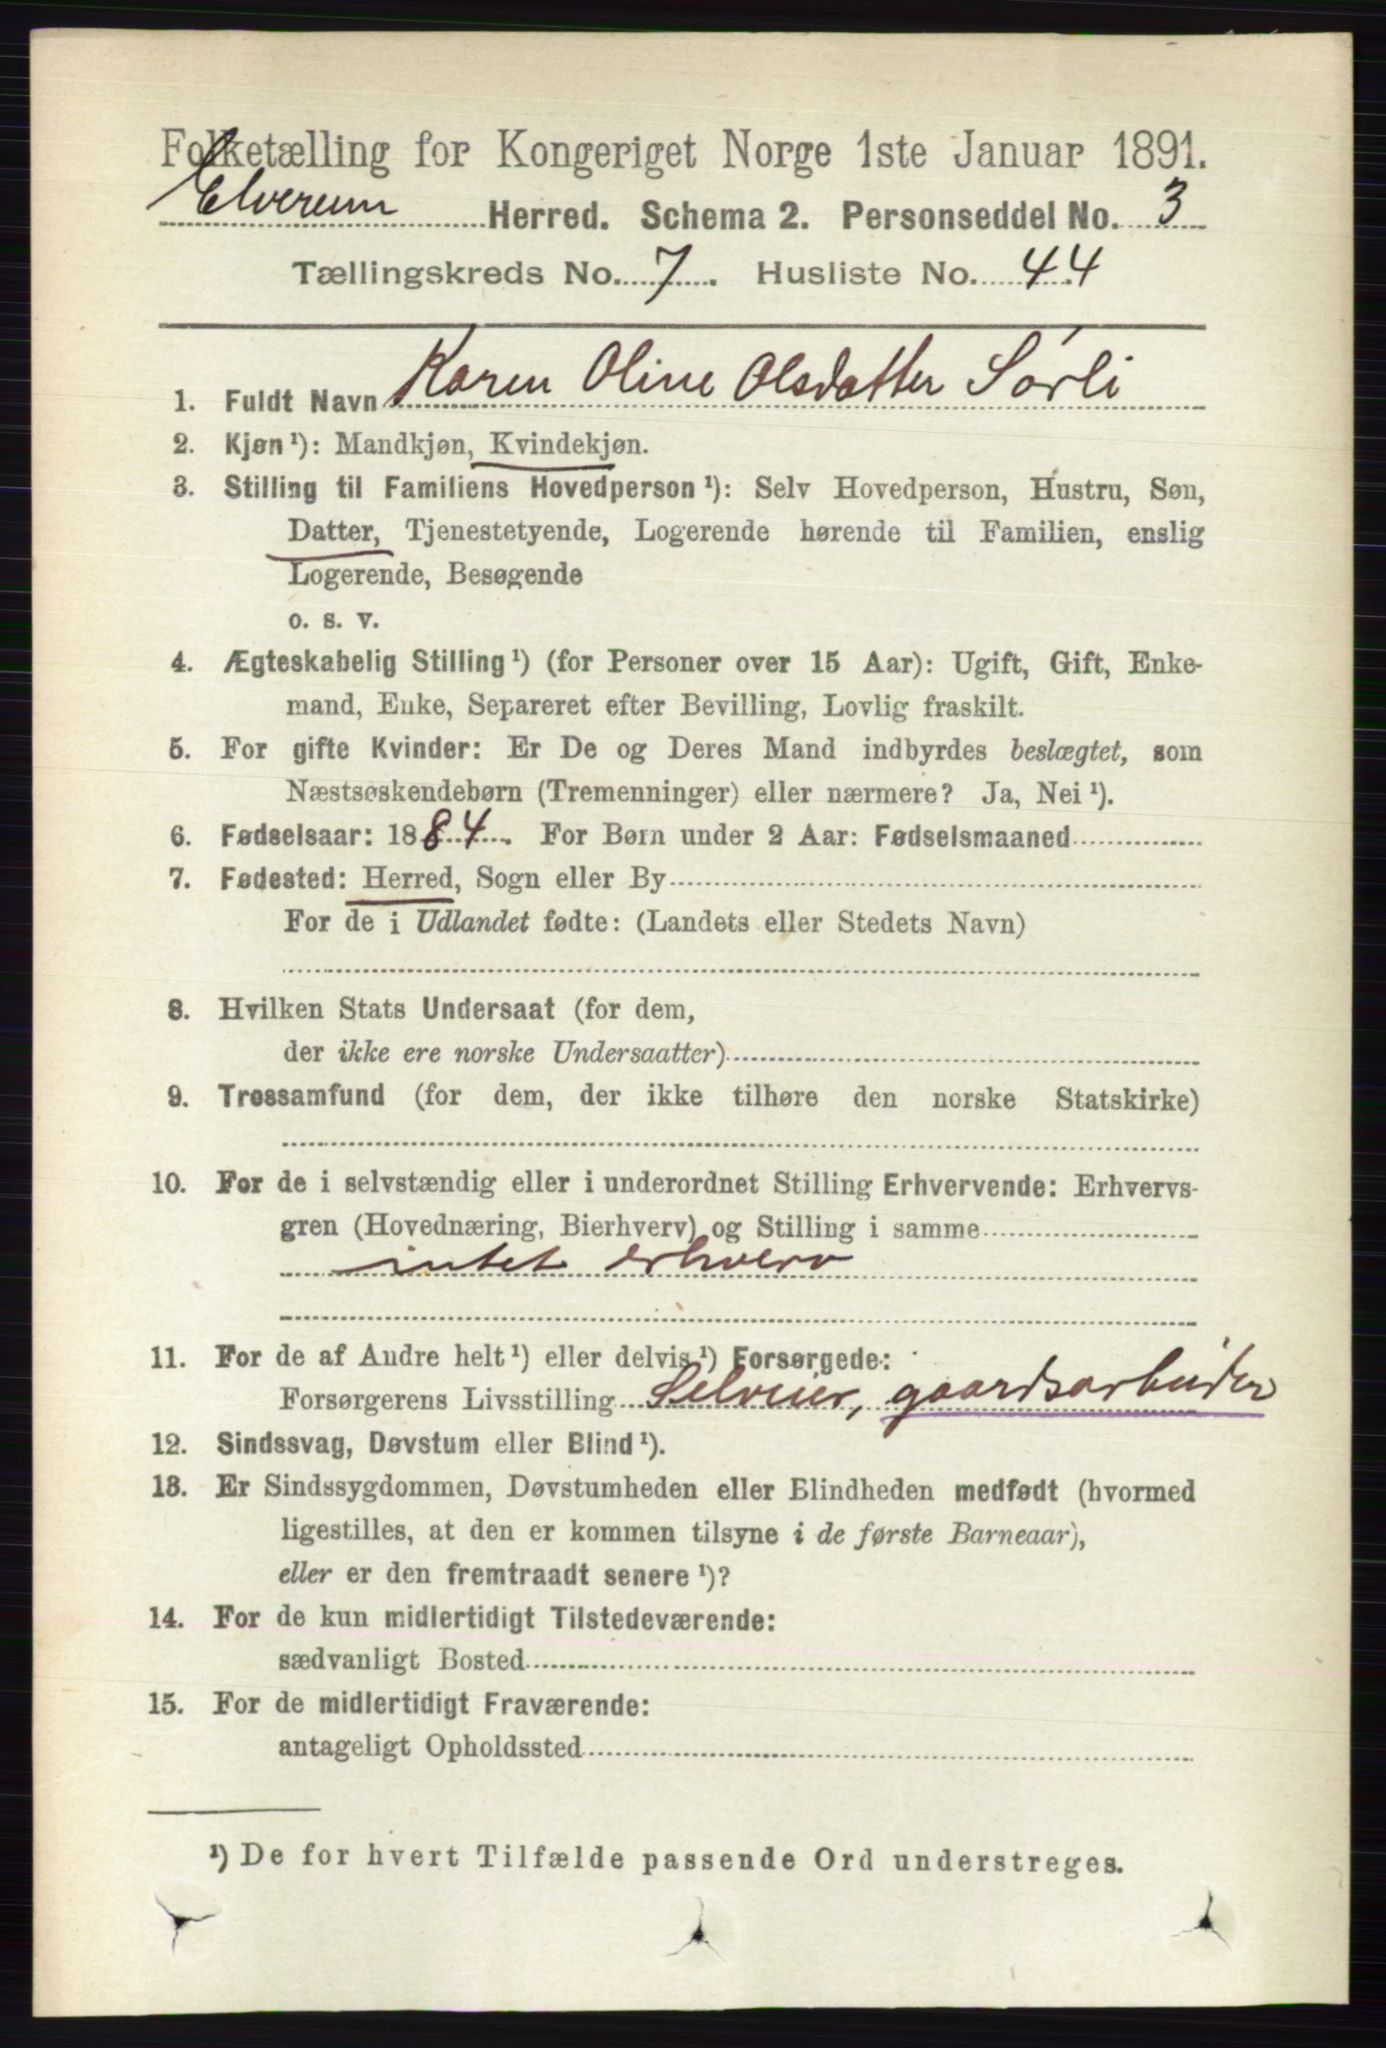 Folketælling for Kongeriget Norge 1ste Januar 1891.
Elverum Herred. Schema 2. Personseddel No. 3
Tællingskreds No. 7. Husliste No. 44
1. Fuldt Navn Karen Oline Olsdatter Sørli
2. Kjøn¹): Mandkjøn, Kvindekjøn.
3. Stilling til Familiens Hovedperson¹): Selv Hovedperson, Hustru, Søn,
Datter, Tjenestetyende, Logerende hørende til Familien, enslig
Logerende, Besøgende
o. s. v.
4. Ægteskabelig Stilling¹) (for Personer over 15 Aar): Ugift, Gift, Enke-
mand, Enke, Separeret efter Bevilling, Lovlig fraskilt.
5. For gifte Kvinder: Er De og Deres Mand indbyrdes beslægtet, som
Næstsøskendebørn (Tremenninger) eller nærmere? Ja, Nei¹).
6. Fødselsaar: 1884. For Børn under 2 Aar: Fødselsmaaned
7. Fødested: Herred, Sogn eller By
For de i Udlandet fødte: (Landets eller Stedets Navn)
8. Hvilken Stats Undersaat (for dem,
der ikke ere norske Undersaatter)
9. Trossamfund (for dem, der ikke tilhøre den norske Statskirke)
10. For de i selvstændig eller i underordnet Stilling Erhvervende: Erhvervs-
gren (Hovednæring, Bierhverv) og Stilling i samme
intet erhverv
11. For de af Andre helt¹) eller delvis¹) Forsørgede:
Forsørgerens Livsstilling Selveier, gaardsarbeider
12. Sindssvag, Døvstum eller Blind¹).
13. Er Sindssygdommen, Døvstumheden eller Blindheden medfødt (hvormed
ligestilles, at den er kommen tilsyne i de første Barneaar),
eller er den fremtraadt senere¹)?
14. For de kun midlertidigt Tilstedeværende:
sædvanligt Bosted
15. For de midlertidigt Fraværende:
antageligt Opholdssted
¹) De for hvert Tilfælde passende Ord understreges.